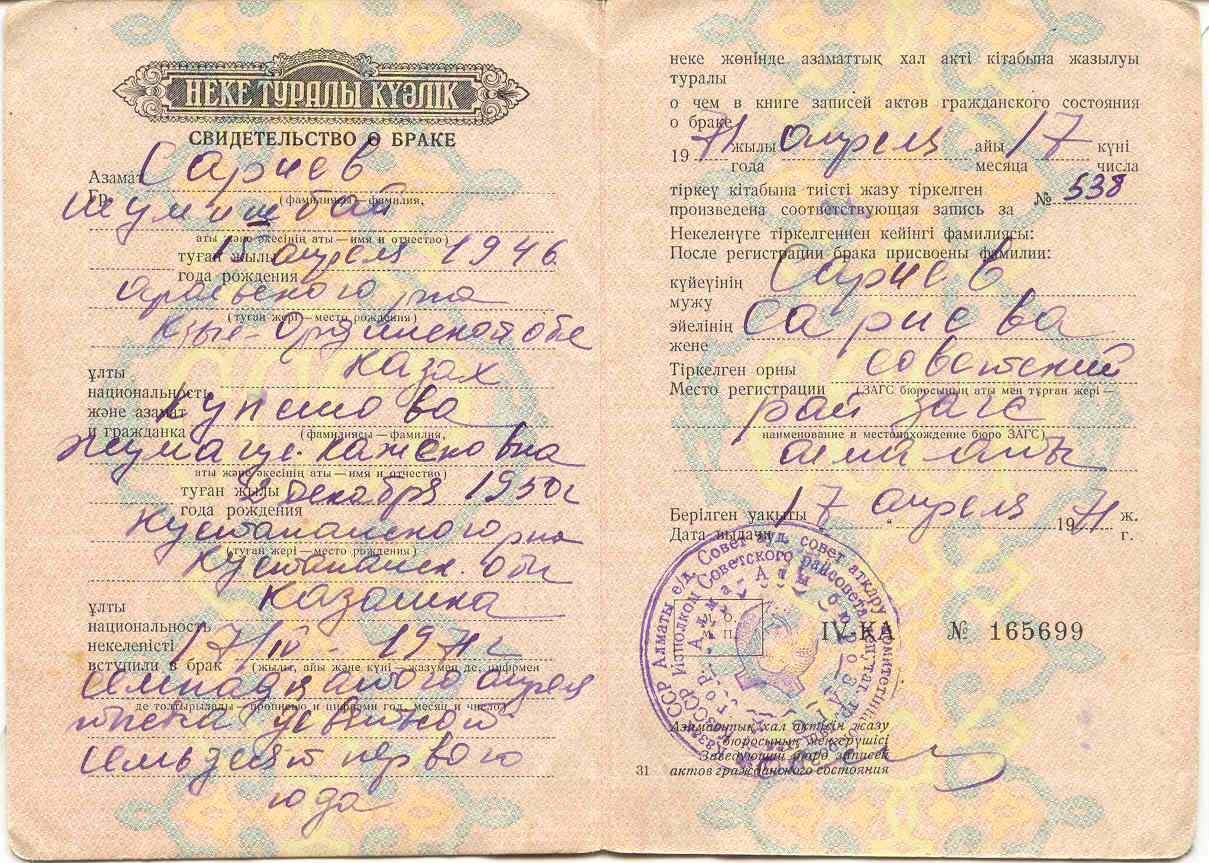 НЕКЕ ТУРАЛЫ КУӘЛІК
СВИДЕТЕЛЬСТВО О БРАКЕ
Азамат Сариев
Гр.
(фамилиясы — фамилия,
аты және әкесінің аты — имя и отчество)
туған жылы 15 апреля 1946
года рождения
Аральского р-на
(туған жері — место рождения)
Кзыл-Ординской обл
ұлты Казах
национальность
және азамат
и гражданка
(фамилиясы — фамилия,
аты және әкесінің аты — имя и отчество)
туған жылы 2 декабря 1950 г
года рождения
Кустанайского р-на
(туған жері — место рождения)
Кустанайск. обл
ұлты Казашка
национальность
некелеңісті 17/IV - 1971 г
вступили в брак (жылы, айы және күні — жазумен де, цифрмен
семнадцатого апреля
де толтырылады — прописью и цифрами год, месяц и число)
тысяча девятьсот
семьдесят первого
года
неке жөнінде азаматтық хал акті кітабына жазылуы
туралы
о чем в книге записей актов гражданского состояния
о браке
19 71 жылы апреля айы 17 күні
года месяца числа
тіркеу кітабына тиісті жазу тіркелген
произведена соответствующая запись за № 538
Некеленуге тіркелгеннен кейінгі фамилиясы:
После регистрации брака присвоены фамилии:
күйеуінің Сариев
мужу
әйелінің Сариева
жене
Тіркелген орны Советский
Место регистрации (ЗАГС бюросының аты мен тұрған жері —
рай загс
наименование и местонахождение бюро ЗАГС)
Алма аты
Берілген уақыты 17 апреля 1971 ж.
Дата выдачи г.
М. О.
М. П.
IV-КА № 165699
Азаматтық хал актісін жазу
бюросының меңгерушісі
Заведующий бюро записей
31 актов гражданского состояния